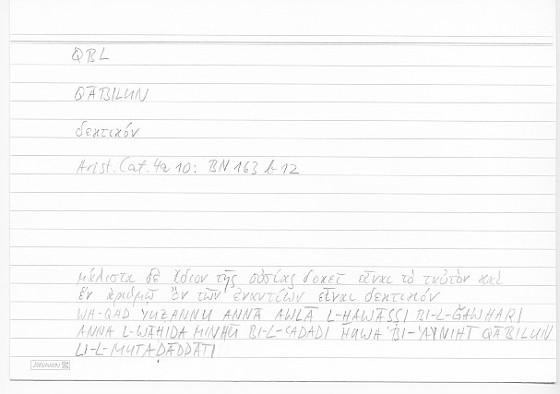 QBL
QĀBILUN
δεκτικόν
Arist. Cat. 4a 10: BN 163 b 12
μάλιστα δὲ ἴδιον τῆς οὐσίας δοκεῖ εἶναι τὸ ταὐτὸν καὶ
ἓν ἀριθμῷ ὂν τῶν ἐναντίων εἶναι δεκτικόν
WA-QAD YUẒANNU ANNA AWLĀ L-ḪAWĀṢṢI BI-L-ǦAWHARI
ANNA L-WĀḤIDA MINHŪ BI-L-ʿADADI HUWA BI-ʿAYNIHĪ QĀBILUN
LI-L-MUTAḌĀDDĀTI